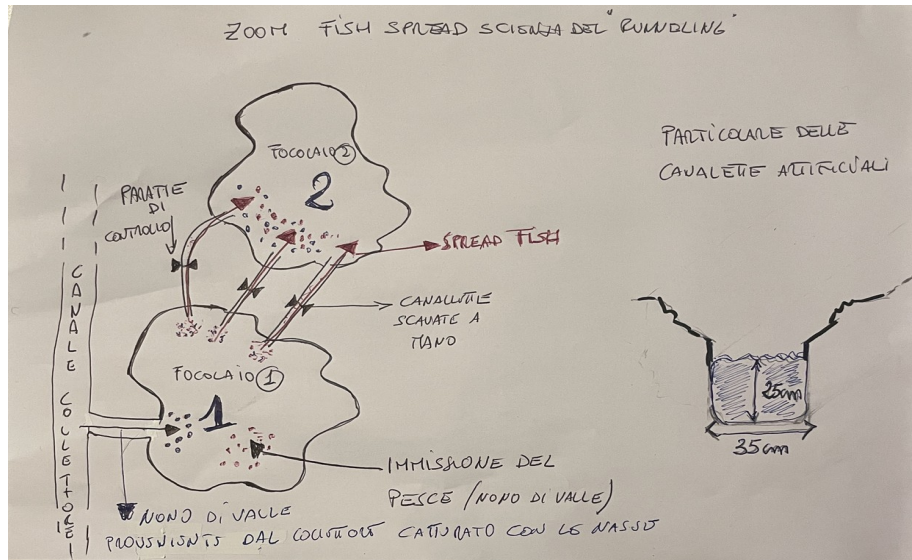 ZOOM FISH SPREAD SCIENZA DEL "RUNNELING"
PARTICOLARE DELLE
CANALETTE ARTIFICIALI
FOCOLAIO 2
2
PARATIE
DI
CONTROLLO
SPREAD FISH
CANALETTE
SCAVATE A
MANO
CANALE COLLETTORE
FOCOLAIO 1
1
25cm
35cm
IMMISSIONE DEL
PESCE (NONO DI VALLE)
NONO DI VALLE
PROVENIENTE DAL COLLETTORE CATTURATO CON LE NASSE